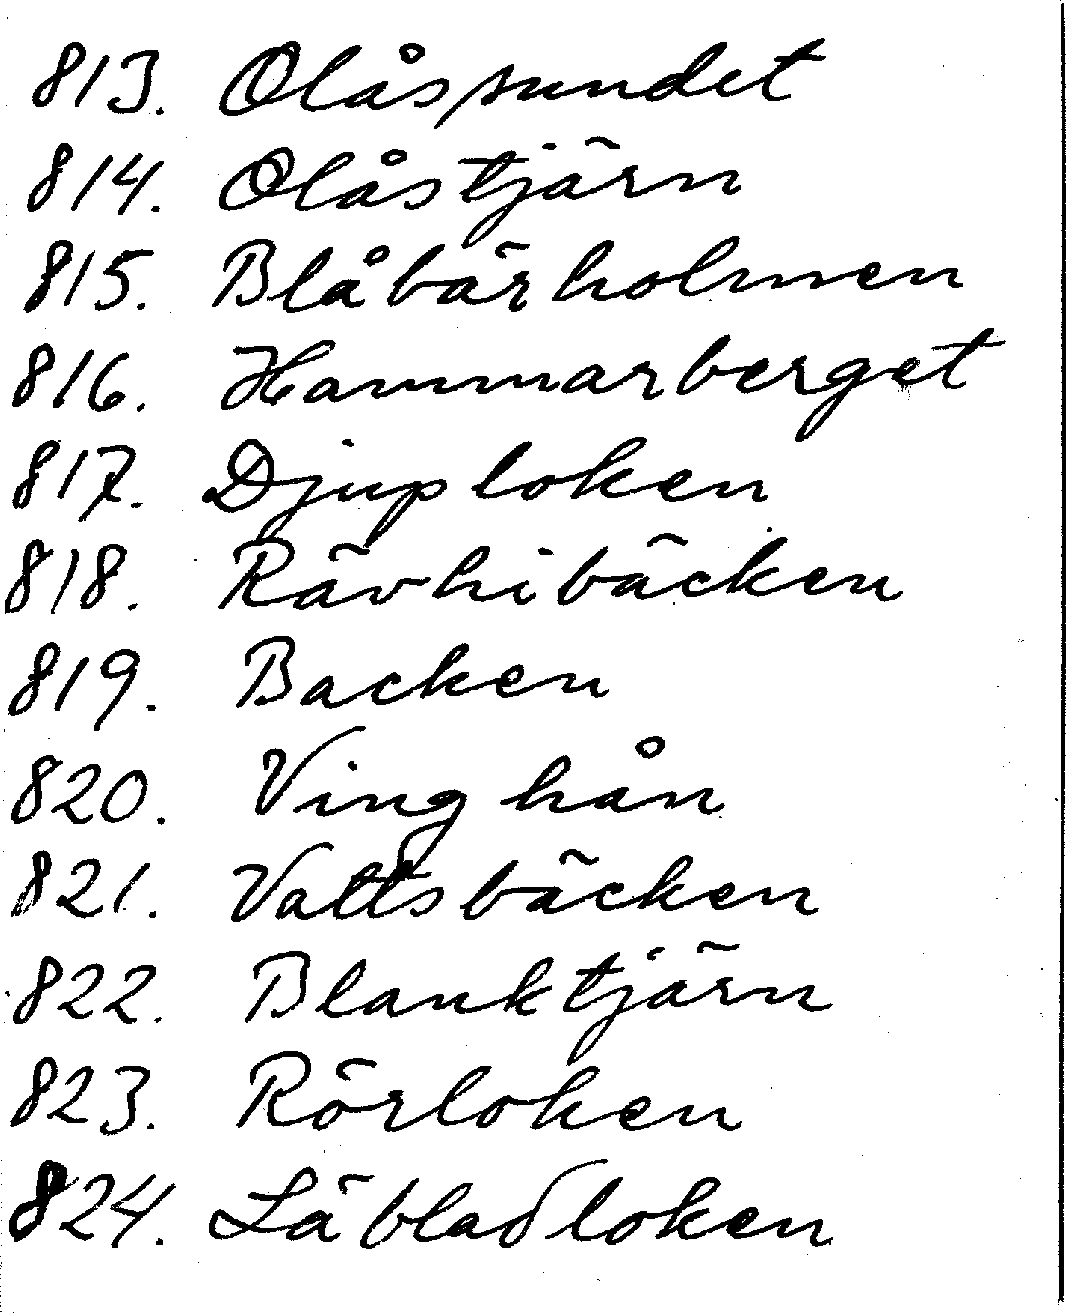 813. Olåssundet
814. Olåstjärn
815. Blåbärholmen
816. Hammarberget
817. Djuploken
818. Rävhibäcken
819. Backen
820. Vinghån
821. Vattsbäcken
822. Blanktjärn
823. Rörloken
824. Läbladloken